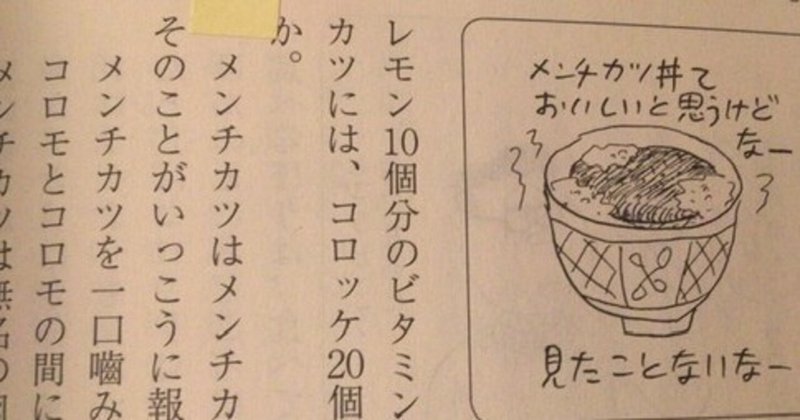 メンチカツ丼て
おいしいと思うけど
なー
見たことないなー
レモン10個分のビタミン
カツには、コロッケ20個
か。
メンチカツはメンチカ
そのことがいっこうに報
メンチカツを一口噛み
コロモとコロモの間に
メンチカツは無名の